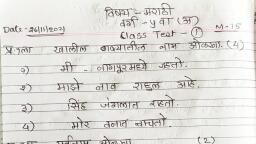 विषय - मराठी
वर्ग - ५ वा (अ)
Date:- 26/11/2021 Class Test - ① M-15
प्र.१ला खालील वाक्यातील नाम ओळखा. (4)
१) मी - नागपूरमध्ये राहतो.
२) माझे नाव राहुल आहे.
३) सिंह जंगलात राहतो.
४) मोर वनात नाचतो.
(2)